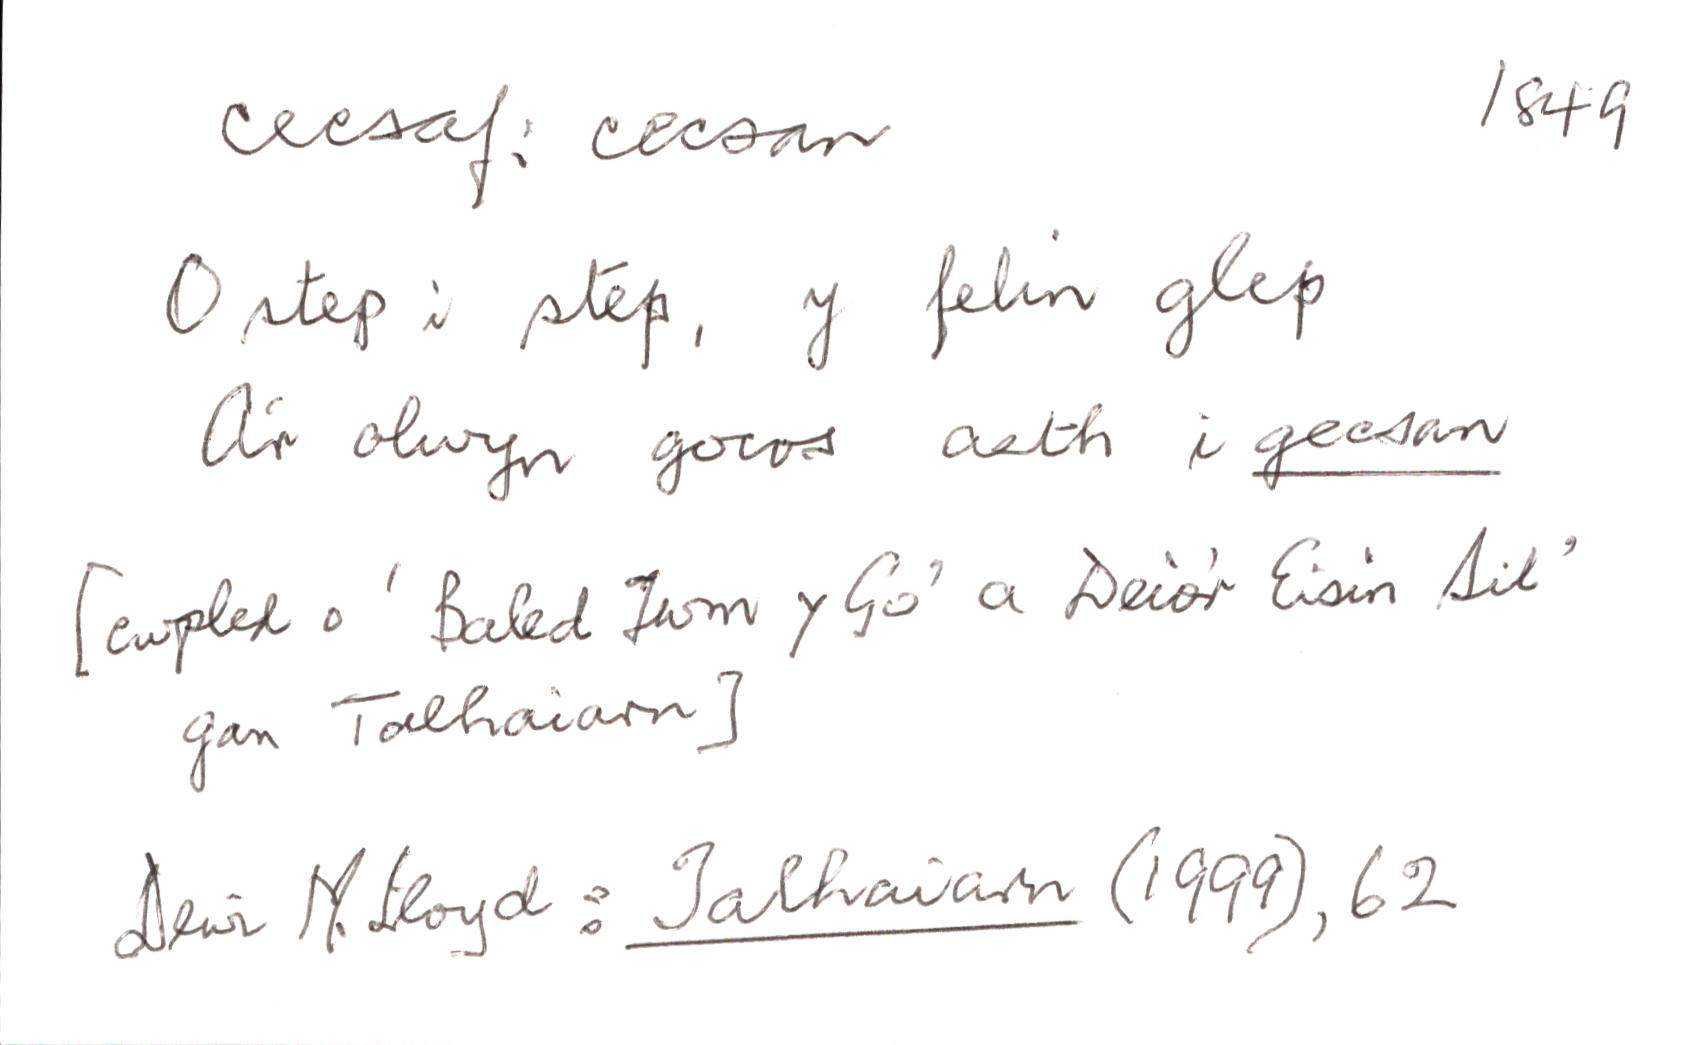 cecsaf: cecsan 1849
O step i step, y felin glep
A'r olwyn gocos aeth i gecsan
[cwpled o 'Baled Twm y Go' a Deio'r Eisin Sil'
gan Talhaiarn]
Dewi M. Lloyd: Talhaiarn (1999), 62